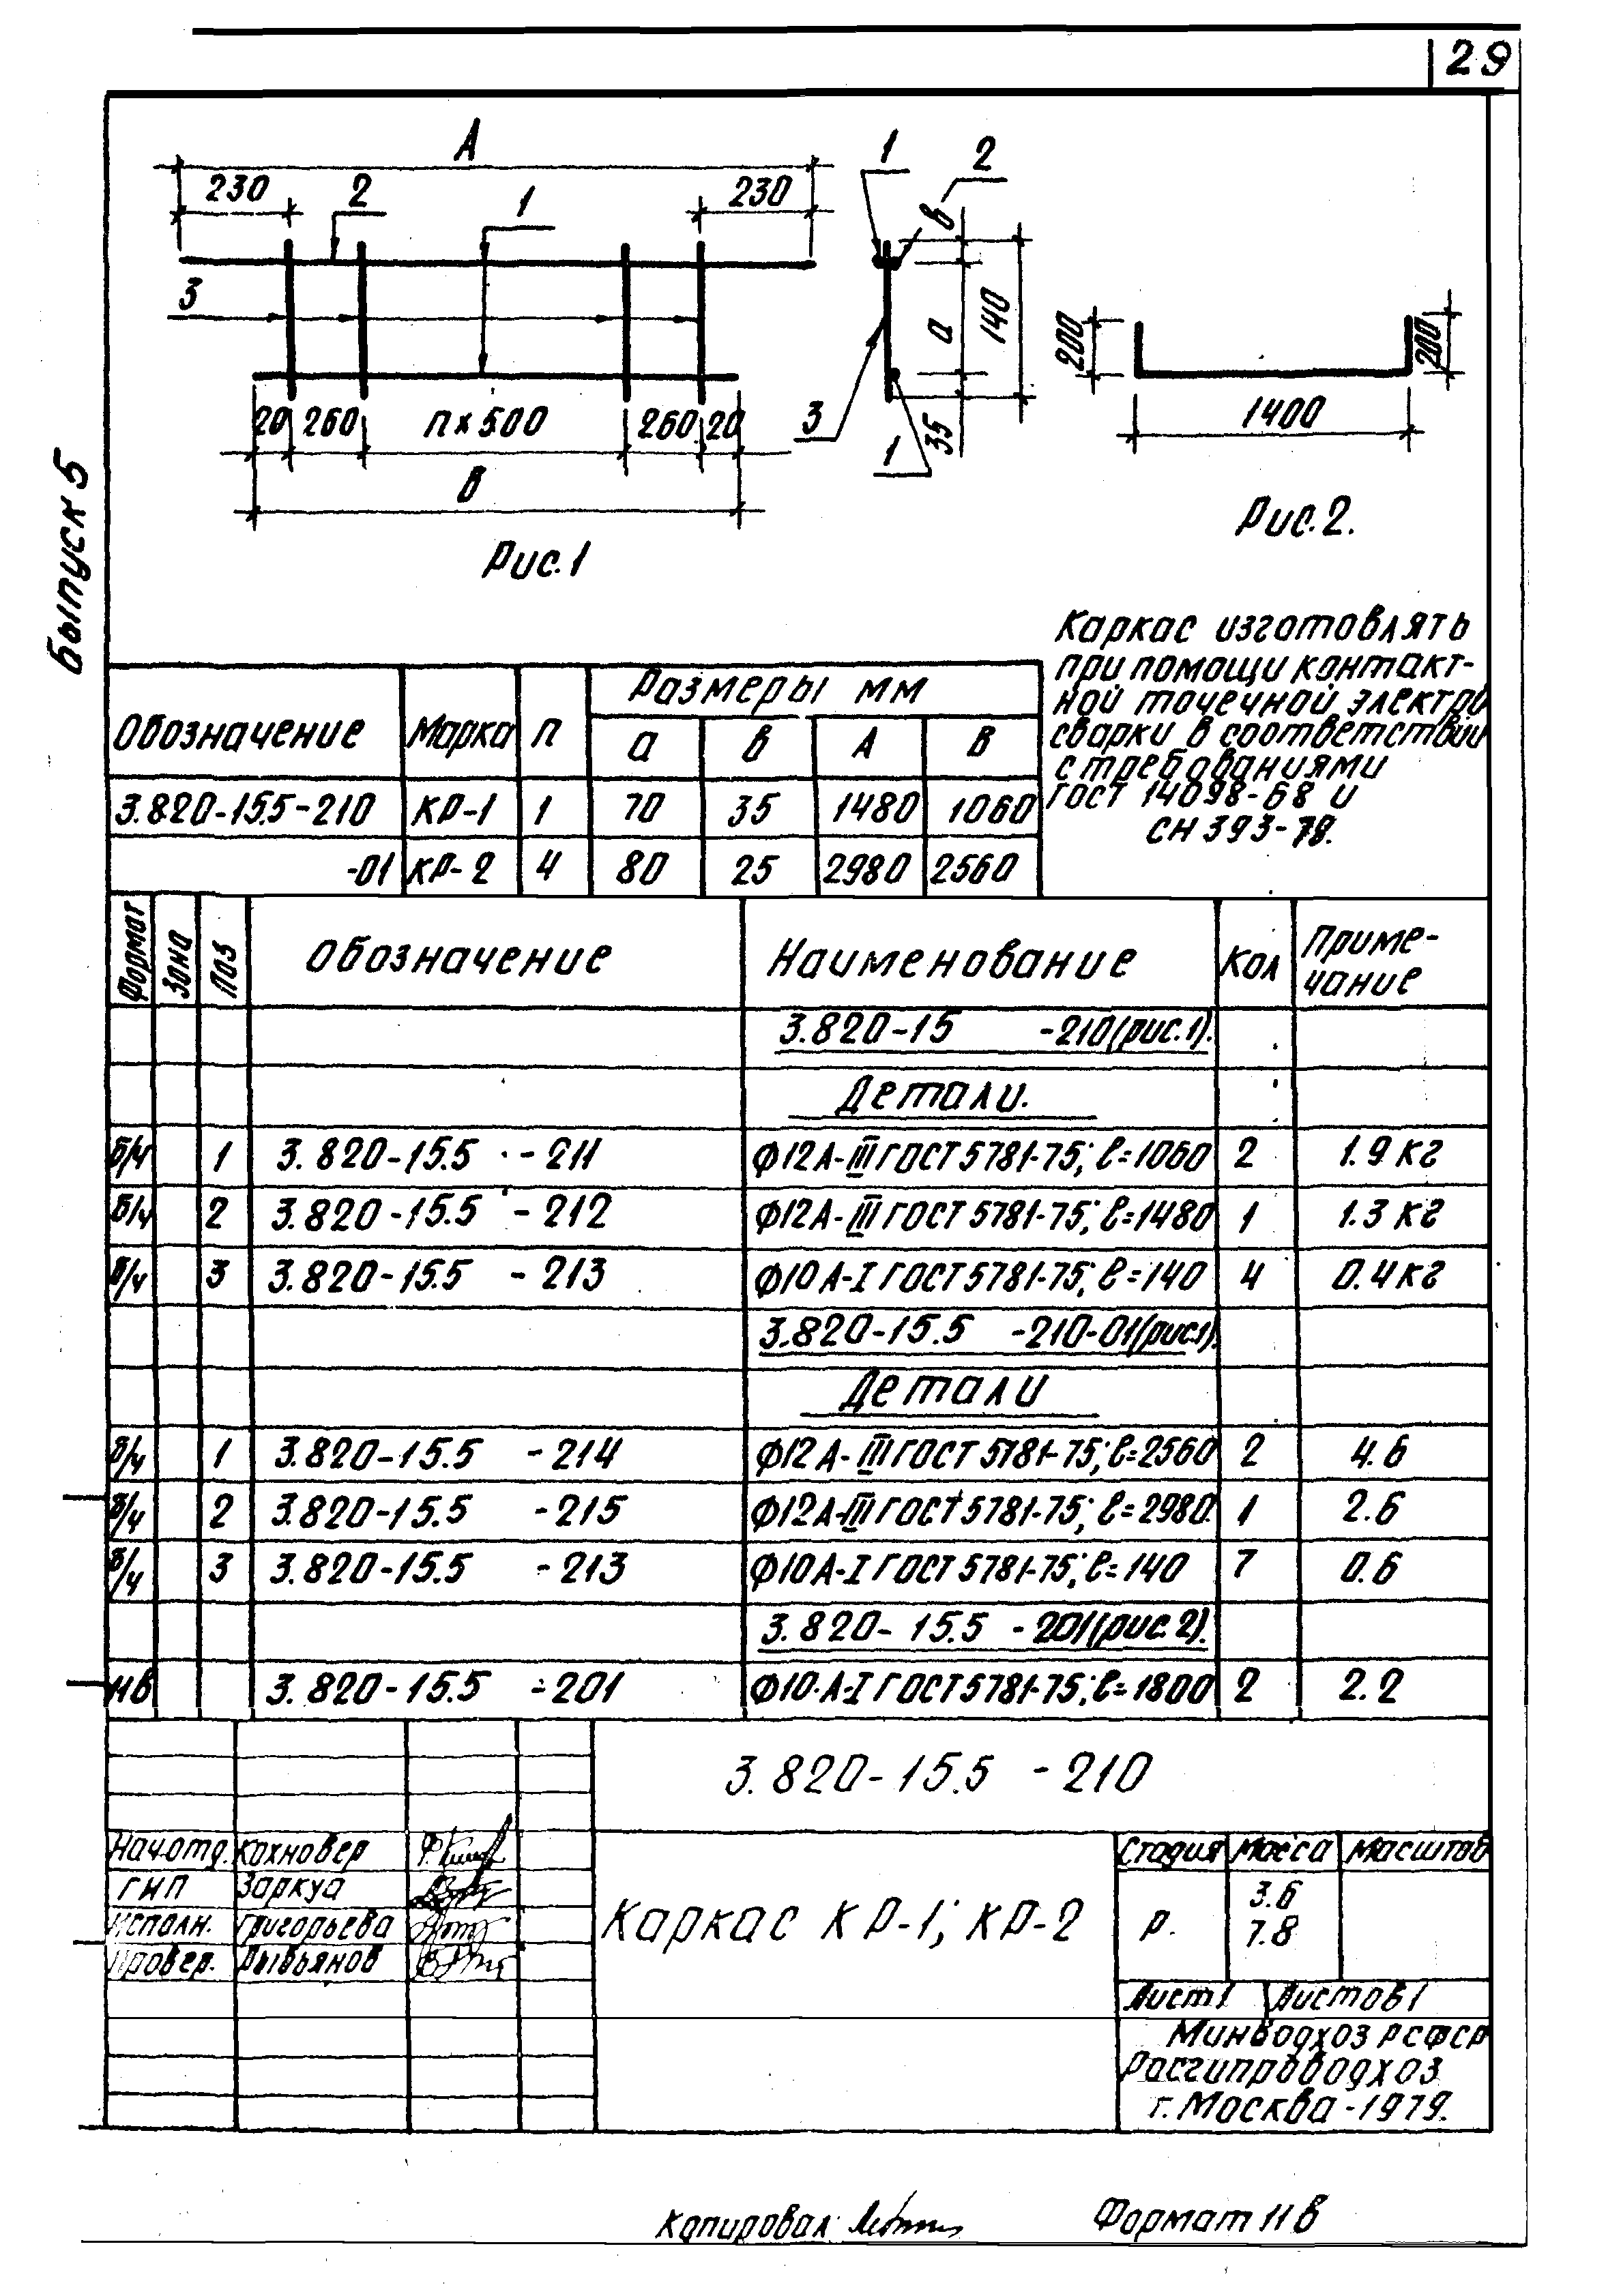 29
Выпуск 5
А
230 2 1 230
3
20 260 п×500 260 20
В
Рис.1
1 2
в
а
140
35
3
1
200
200
1400
Рис.2.
Каркас изготовлять
при помощи контакт-
ной точечной электро
сварки в соответствии
с требованиями
ГОСТ 14098-68 и
СН 393-78.
Обозначение Марка п Размеры мм
а в А В
3.820-15.5-210 КР-1 1 70 35 1480 1060
-01 КР-2 4 80 25 2980 2560
Формат Зона Поз Обозначение Наименование Кол Приме-
чание
3.820-15 -210(рис.1).
Детали.
Б/ч 1 3.820-15.5 -211 Ф12А-III ГОСТ 5781-75; ℓ=1060 2 1.9 кг
Б/ч 2 3.820-15.5 -212 Ф12А-III ГОСТ 5781-75; ℓ=1480 1 1.3 кг
Б/ч 3 3.820-15.5 -213 Ф10А-I ГОСТ 5781-75; ℓ=140 4 0.4 кг
3.820-15.5 -210-01(рис.1).
Детали
Б/ч 1 3.820-15.5 -214 Ф12А-III ГОСТ 5781-75; ℓ=2560 2 4.6
Б/ч 2 3.820-15.5 -215 Ф12А-III ГОСТ 5781-75; ℓ=2980. 1 2.6
Б/ч 3 3.820-15.5 -213 Ф10А-I ГОСТ 5781-75; ℓ=140 7 0.6
3.820-15.5 -201(рис.2).
3.820-15.5 -201 Ф10.А-I ГОСТ 5781-75; ℓ=1800 2 2.2
3.820-15.5 -210
Нач.отд. Кохновер
ГИП Заркуа
Исполн. Григорьева
Провер. Рывьянов
Каркас КР-1; КР-2
Стадия Масса Масштаб
Р. 3.6
7.8
Лист 1 Листов 1
Минводхоз РСФСР
Росгипроводхоз
г. Москва-1979.
Копировал: Формат 11В